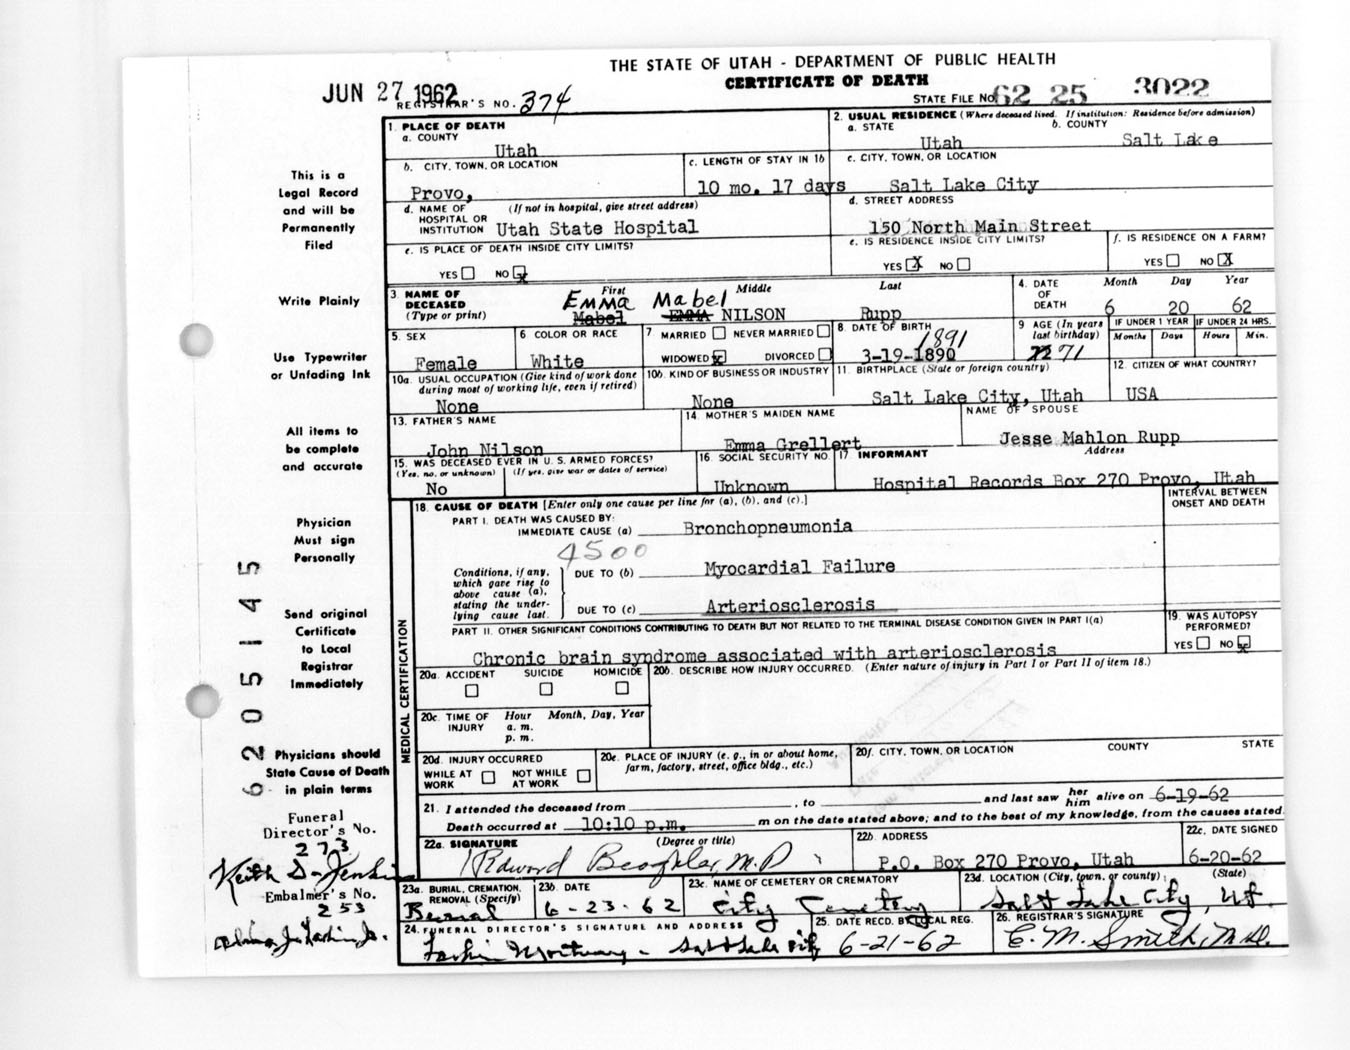 THE STATE OF UTAH - DEPARTMENT OF PUBLIC HEALTH
CERTIFICATE OF DEATH
JUN 27 1962
REGISTRAR'S NO. 374
STATE FILE NO. 62 25 3022
This is a
Legal Record
and will be
Permanently
Filed
Write Plainly
Use Typewriter
or Unfading Ink
All items to
be complete
and accurate
Physician
Must sign
Personally
Send original
Certificate
to Local
Registrar
Immediately
Physicians should
State Cause of Death
in plain terms
Funeral
Director's No.
273
Keith D. Jenkins
Embalmer's No.
253
6205145
1. PLACE OF DEATH
a. COUNTY
Utah
2. USUAL RESIDENCE (Where deceased lived. If institution: Residence before admission)
a. STATE b. COUNTY
Utah Salt Lake
b. CITY, TOWN, OR LOCATION
Provo,
c. LENGTH OF STAY IN 1b
10 mo. 17 days
c. CITY, TOWN, OR LOCATION
Salt Lake City
d. NAME OF HOSPITAL OR INSTITUTION (If not in hospital, give street address)
Utah State Hospital
d. STREET ADDRESS
150 North Main Street
e. IS PLACE OF DEATH INSIDE CITY LIMITS?
YES NO X
e. IS RESIDENCE INSIDE CITY LIMITS?
YES X NO
f. IS RESIDENCE ON A FARM?
YES NO X
3. NAME OF DECEASED (Type or print)
First Middle Last
EMMA Mabel
Mabel EMMA NILSON Rupp
4. DATE OF DEATH
Month Day Year
6 20 62
5. SEX
Female
6 COLOR OR RACE
White
7 MARRIED NEVER MARRIED
WIDOWED X DIVORCED
8. DATE OF BIRTH
1891
3-19-1890
9 AGE (In years last birthday)
72 71
IF UNDER 1 YEAR IF UNDER 24 HRS.
Months Days Hours Min.
10a. USUAL OCCUPATION (Give kind of work done during most of working life, even if retired)
None
10b. KIND OF BUSINESS OR INDUSTRY
None
11. BIRTHPLACE (State or foreign country)
Salt Lake City, Utah
12 CITIZEN OF WHAT COUNTRY?
USA
13. FATHER'S NAME
John Nilson
14 MOTHER'S MAIDEN NAME
Emma Grellert
NAME OF SPOUSE
Jesse Mahlon Rupp
15. WAS DECEASED EVER IN U. S. ARMED FORCES?
(Yes, no, or unknown) (If yes, give war or dates of service)
No
16 SOCIAL SECURITY NO.
Unknown
17 INFORMANT Address
Hospital Records Box 270 Provo, Utah
MEDICAL CERTIFICATION
18. CAUSE OF DEATH [Enter only one cause per line for (a), (b), and (c).]
INTERVAL BETWEEN ONSET AND DEATH
PART I. DEATH WAS CAUSED BY:
IMMEDIATE CAUSE (a) Bronchopneumonia
4500
Conditions, if any, which gave rise to above cause (a), stating the underlying cause last.
DUE TO (b) Myocardial Failure
DUE TO (c) Arteriosclerosis
PART II. OTHER SIGNIFICANT CONDITIONS CONTRIBUTING TO DEATH BUT NOT RELATED TO THE TERMINAL DISEASE CONDITION GIVEN IN PART I(a)
Chronic brain syndrome associated with arteriosclerosis
19. WAS AUTOPSY PERFORMED?
YES NO X
20a. ACCIDENT SUICIDE HOMICIDE
20b. DESCRIBE HOW INJURY OCCURRED. (Enter nature of injury in Part I or Part II of item 18.)
20c. TIME OF INJURY Hour Month, Day, Year
a. m.
p. m.
20d. INJURY OCCURRED
WHILE AT WORK NOT WHILE AT WORK
20e. PLACE OF INJURY (e. g., in or about home, farm, factory, street, office bldg., etc.)
20f. CITY, TOWN, OR LOCATION COUNTY STATE
21. I attended the deceased from , to and last saw her him alive on 6-19-62
Death occurred at 10:10 p.m. m on the date stated above; and to the best of my knowledge, from the causes stated.
22a. SIGNATURE (Degree or title)
M.D
22b. ADDRESS
P.O. Box 270 Provo, Utah
22c. DATE SIGNED
6-20-62
23a. BURIAL, CREMATION, REMOVAL (Specify)
Burial
23b. DATE
6-23-62
23c. NAME OF CEMETERY OR CREMATORY
City Cemetery
23d. LOCATION (City, town, or county) (State)
Salt Lake City, Ut.
24. FUNERAL DIRECTOR'S SIGNATURE AND ADDRESS
Larkin Mortuary - Salt Lake City
25. DATE RECD. BY LOCAL REG.
6-21-62
26. REGISTRAR'S SIGNATURE
C. M. Smith, M.D.